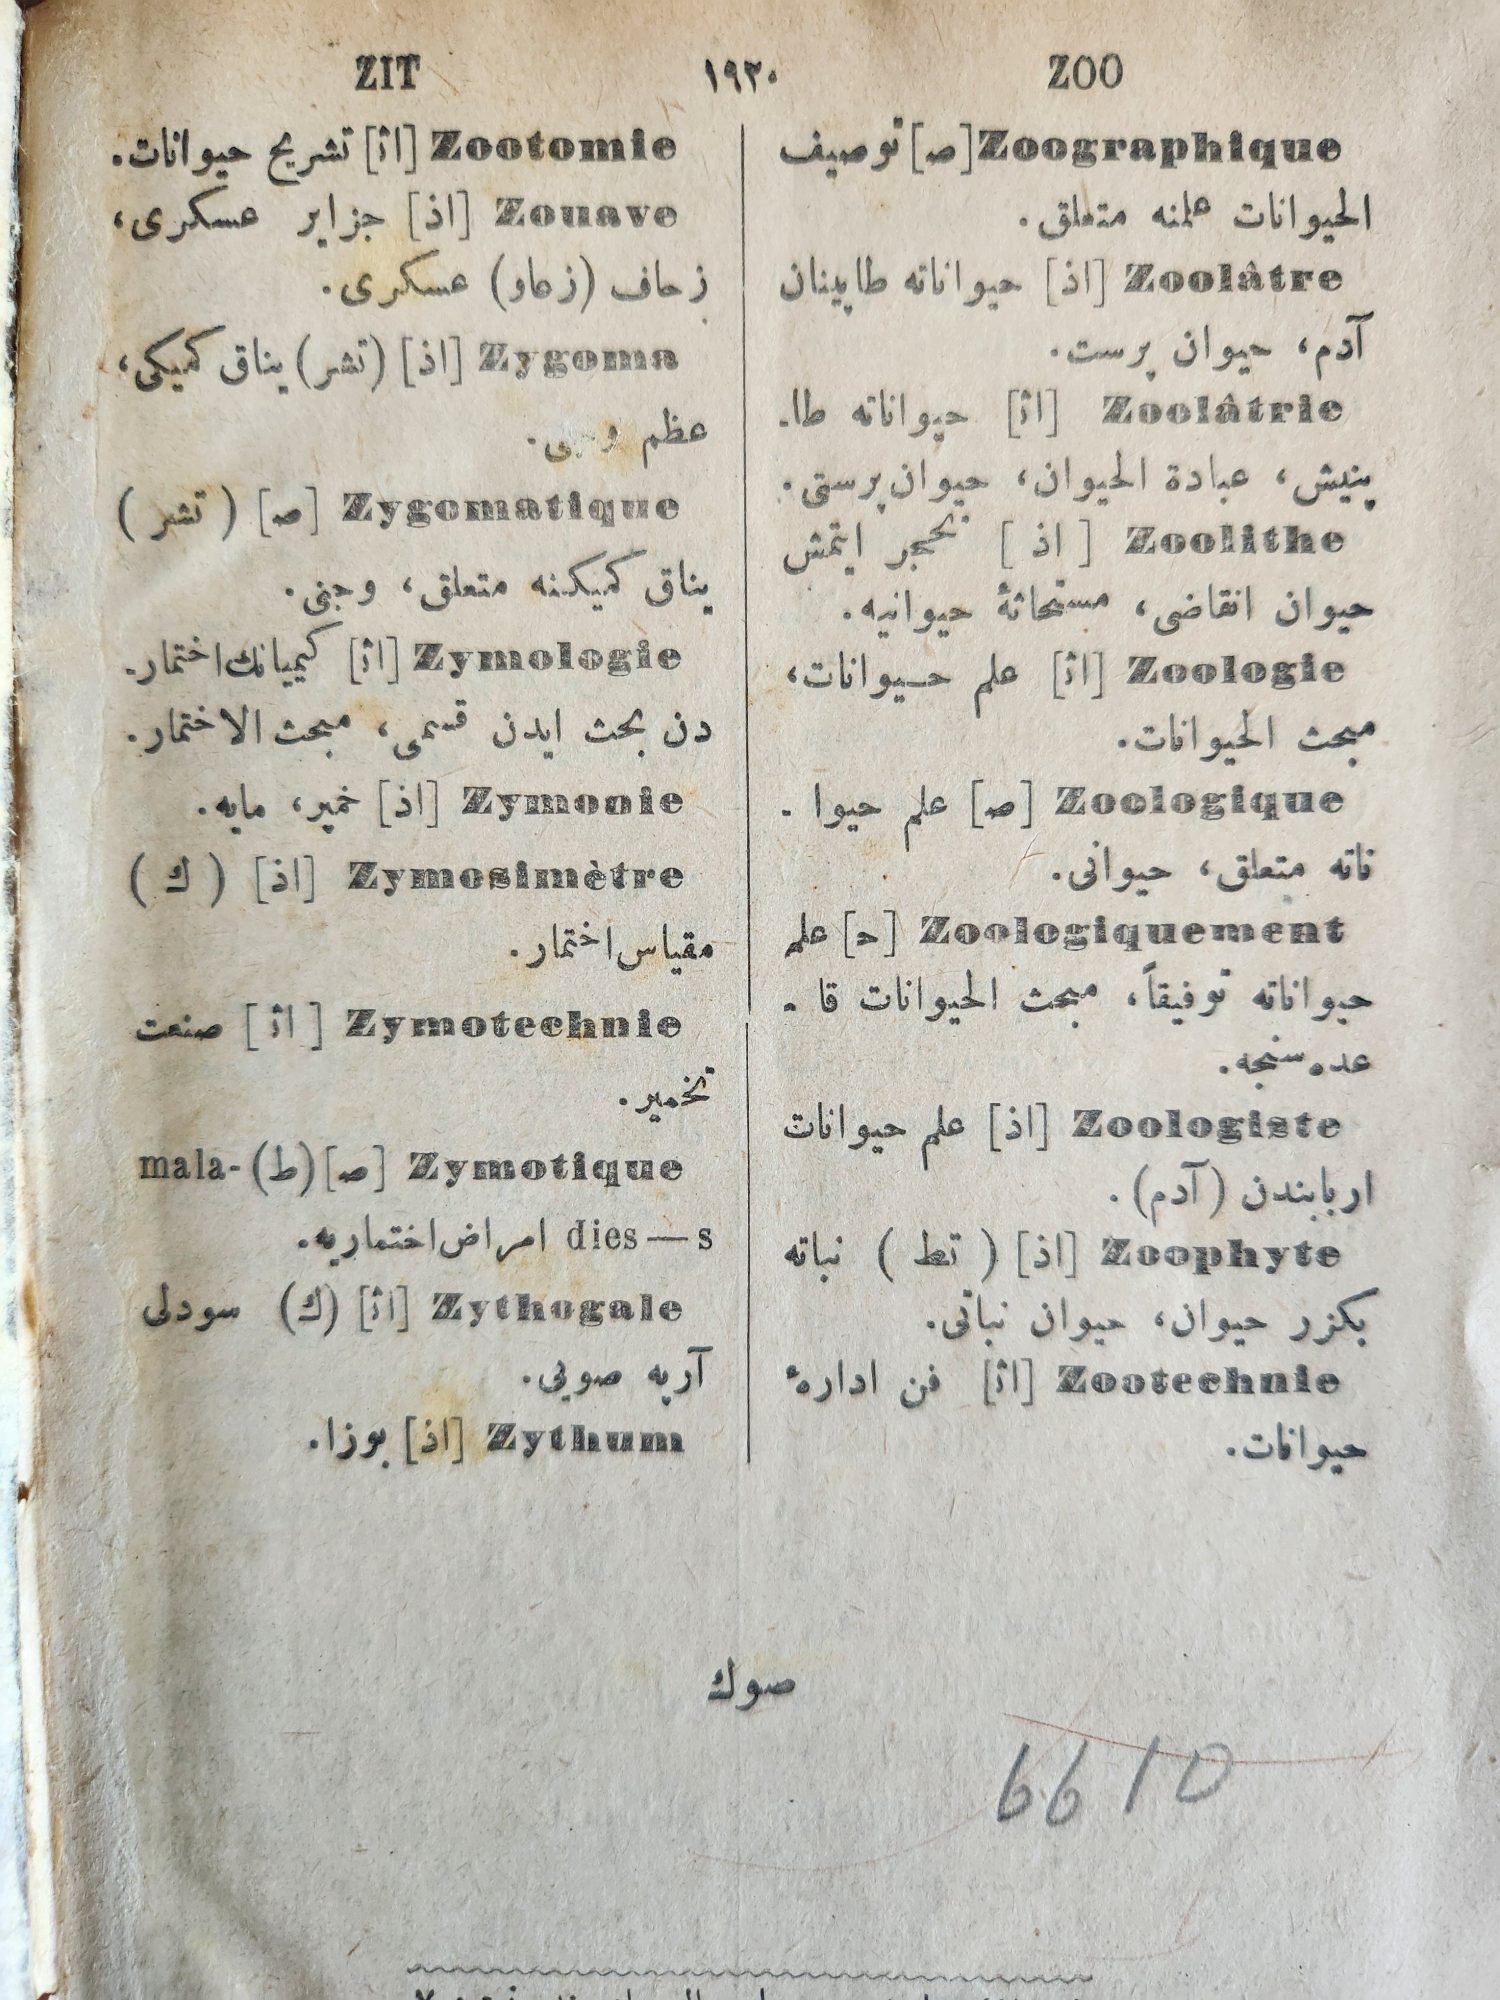 ZIT ١٩٢٠ ZOO
Zoographique [ص] توصيف
الحيوانات علمنه متعلق.
Zoolâtre [اذ] حيواناته طاپينان
آدم، حيوان پرست.
Zoolâtrie [اث] حيواناته طا-
پينيش، عبادة الحيوان، حيوان پرستى.
Zoolithe [اذ] تحجر ايتمش
حيوان انقاضى، مستحاثۀ حيوانيه.
Zoologie [اث] علم حيوانات،
مبحث الحيوانات.
Zoologique [ص] علم حيوا -
ناته متعلق، حيوانى.
Zoologiquement [ح] علم
حيواناته توفيقاً، مبحث الحيوانات قا -
عده سنجه.
Zoologiste [اذ] علم حيوانات
اربابندن (آدم).
Zoophyte [اذ] (تط) نباته
بكزر حيوان، حيوان نباتى.
Zootechnie [اث] فن ادارۀ
حيوانات.
Zootomie [اث] تشريح حيوانات.
Zouave [اذ] جزاير عسكرى،
زحاف (زعاو) عسكرى.
Zygoma [اذ] (تشر) يناق كميكى،
عظم
Zygomatique [ص] (تشر)
يناق كميكنه متعلق، وجنى.
Zymologie [اث] كيميانك اختمار-
دن بحث ايدن قسمى، مبحث الاختمار.
Zymooie [اذ] خمير، مايه.
Zymosimètre [اذ] (ك)
مقياس اختمار.
Zymotechnie [اث] صنعت
تخمير.
Zymotique [ص] (ط) mala-
dies — s امراض اختماريه.
Zythogale [اث] (ك) سودلى
آرپه صويى.
Zythum [اذ] بوزا.
صوك
6610